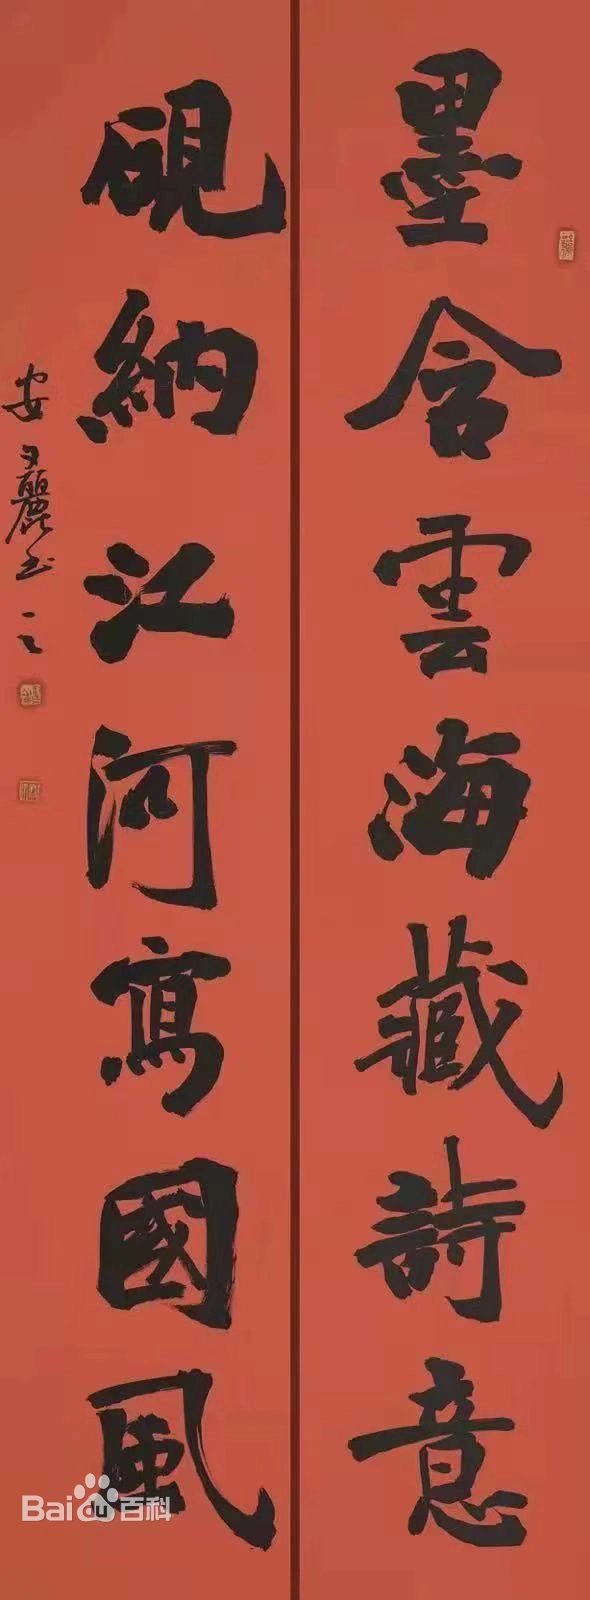 墨含雲海藏詩意
硯納江河寫國風
安文麗书
Bai du 百科